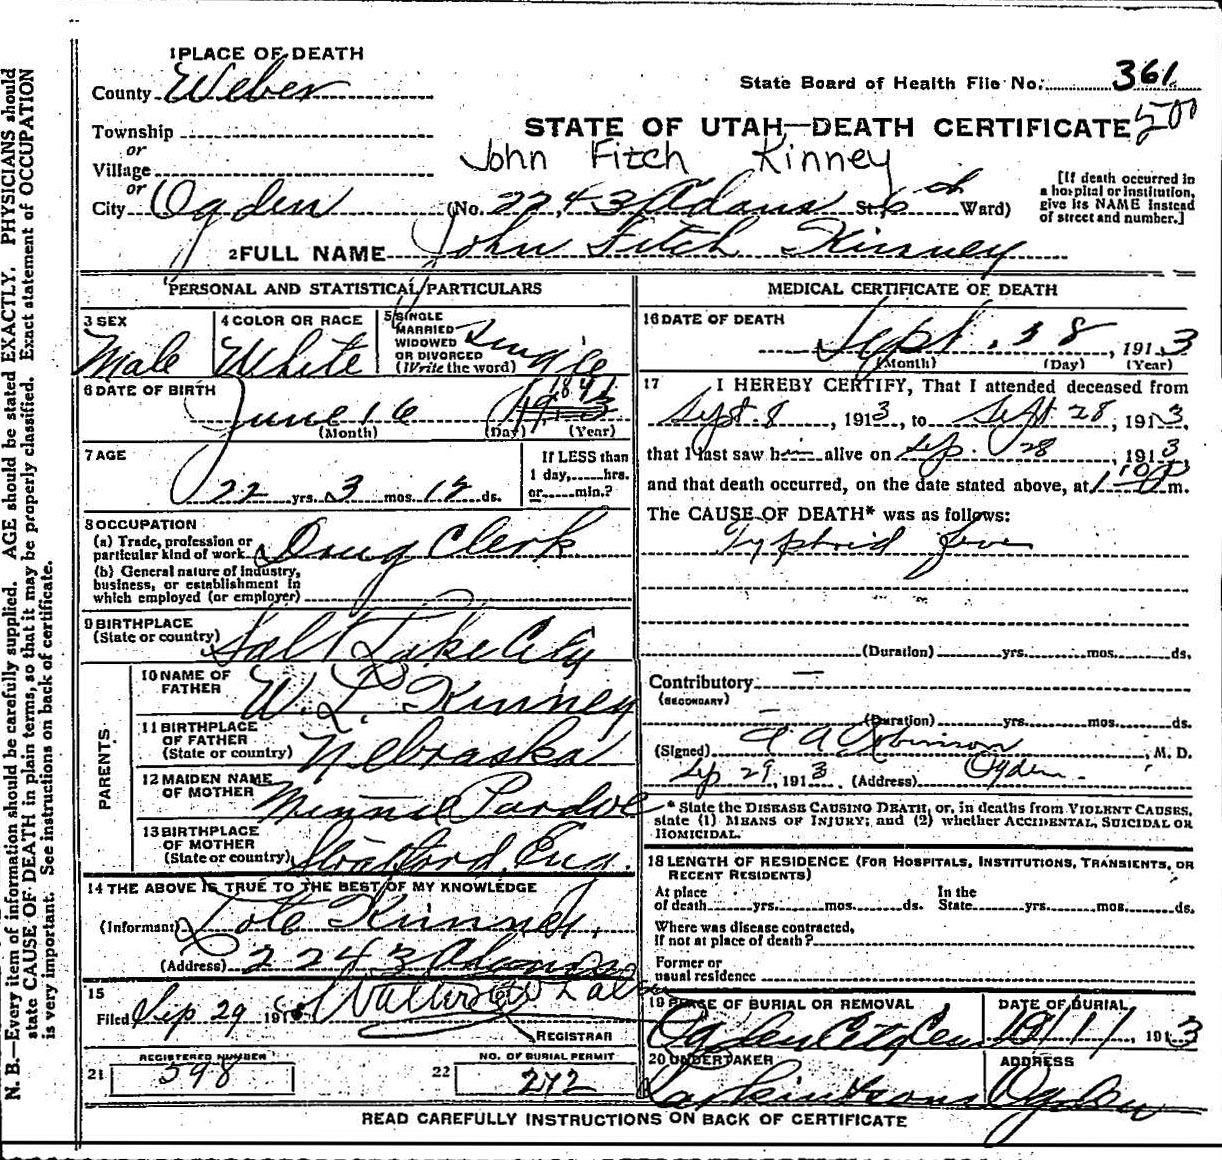 1 PLACE OF DEATH
County Weber
State Board of Health File No. 361
500
Township
or
STATE OF UTAH—DEATH CERTIFICATE
Village
or
John Fitch Kinney
City Ogden (No. 2243 Adams St. 6th Ward)
[If death occurred in
a hospital or institution,
give its NAME instead
of street and number.]
2 FULL NAME John Fitch Kinney
PERSONAL AND STATISTICAL PARTICULARS
3 SEX
Male
4 COLOR OR RACE
White
5 SINGLE
MARRIED
WIDOWED
OR DIVORCED
(Write the word)
Single
6 DATE OF BIRTH
June 16
(Month) (Day) (Year)
7 AGE
22 yrs. 3 mos. 12 ds.
If LESS than
1 day, hrs.
or min.?
8 OCCUPATION
(a) Trade, profession or
particular kind of work Drug Clerk
(b) General nature of industry,
business, or establishment in
which employed (or employer)
9 BIRTHPLACE
(State or country) Salt Lake City
PARENTS
10 NAME OF
FATHER W. L. Kinney
11 BIRTHPLACE
OF FATHER
(State or country) Nebraska
12 MAIDEN NAME
OF MOTHER Minnie Pardoe
13 BIRTHPLACE
OF MOTHER
(State or country) Stratford, Eng.
14 THE ABOVE IS TRUE TO THE BEST OF MY KNOWLEDGE
(Informant) Lote Kinney
(Address) 2243 Adams
15
Filed Sep 29 191 Walter
REGISTRAR
REGISTERED NUMBER
21 598
NO. OF BURIAL PERMIT
22 272
MEDICAL CERTIFICATE OF DEATH
16 DATE OF DEATH
Sept. 28, 1913
(Month) (Day) (Year)
17 I HEREBY CERTIFY, That I attended deceased from
Sept. 8, 1913, to Sept 28, 1913,
that I last saw him alive on Sep. 28, 1913
and that death occurred, on the date stated above, at m.
The CAUSE OF DEATH* was as follows:
Typhoid fever
(Duration) yrs. mos. ds.
Contributory —
(SECONDARY)
(Duration) yrs. mos. ds.
(Signed) Robinson, M. D.
Sep 29, 1913 (Address) Ogden
* State the DISEASE CAUSING DEATH, or, in deaths from VIOLENT CAUSES,
state (1) MEANS OF INJURY; and (2) whether ACCIDENTAL, SUICIDAL OR
HOMICIDAL.
18 LENGTH OF RESIDENCE (FOR HOSPITALS, INSTITUTIONS, TRANSIENTS, OR
RECENT RESIDENTS)
At place
of death yrs. mos. ds.
In the
State yrs. mos. ds.
Where was disease contracted,
If not at place of death?
Former or
usual residence
19 PLACE OF BURIAL OR REMOVAL
Ogden City Cem
DATE OF BURIAL
10/1/, 1913
20 UNDERTAKER
Larkin & Sons
ADDRESS
Ogden
READ CAREFULLY INSTRUCTIONS ON BACK OF CERTIFICATE
N. B.—Every item of information should be carefully supplied. AGE should be stated EXACTLY. PHYSICIANS should
state CAUSE OF DEATH in plain terms, so that it may be properly classified. Exact statement of OCCUPATION
is very important. See instructions on back of certificate.